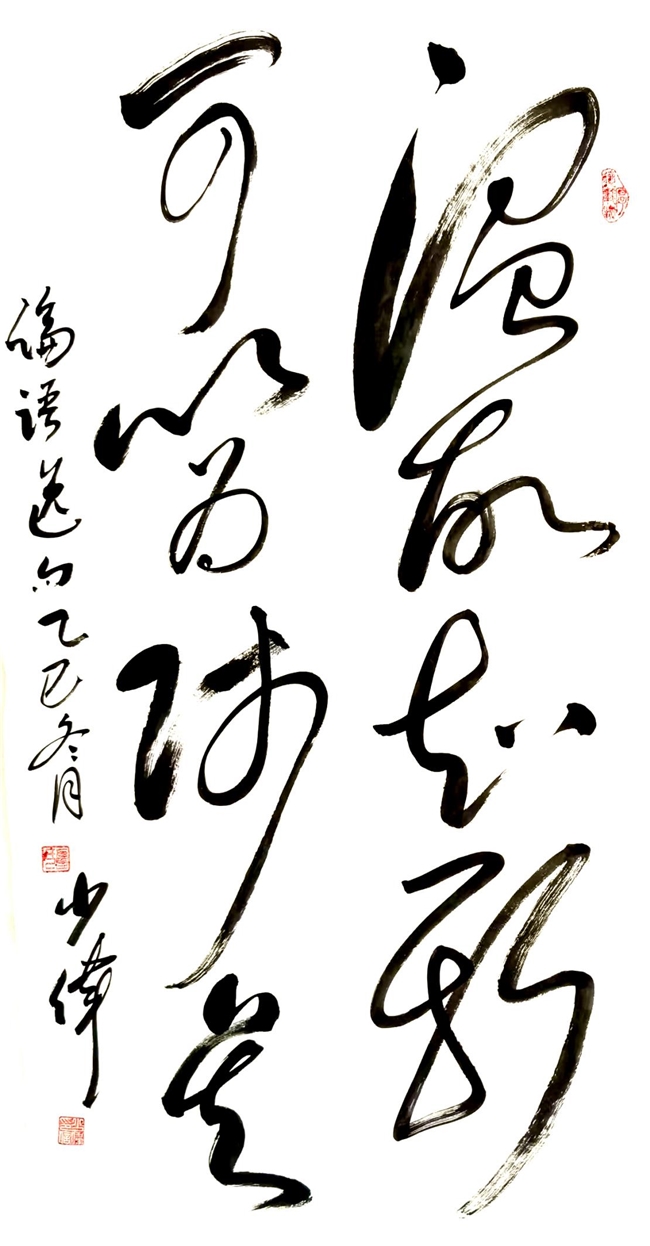 温故知新
可以為师矣
論语选句乙巳冬月
少偉